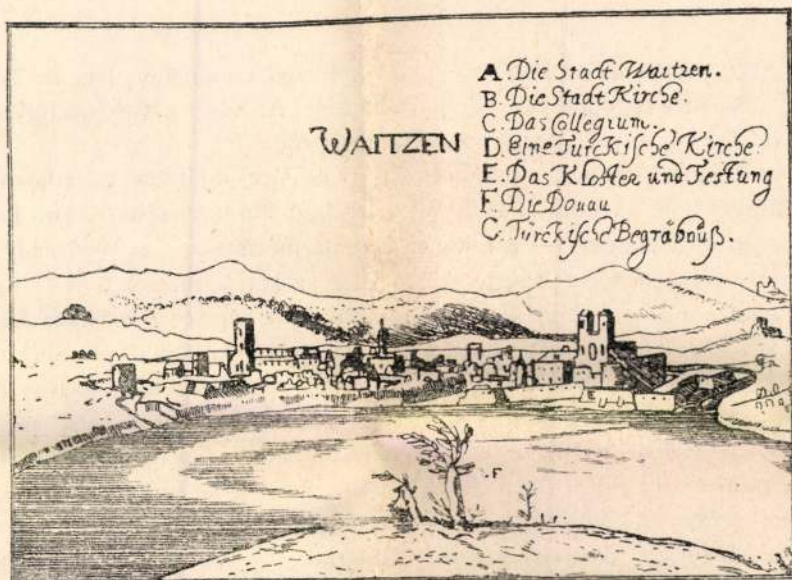 WAITZEN
A. Die Stadt Waitzen.
B. Die Stadt Kirche.
C. Das Collegium.
D. Eine Türckische Kirche.
E. Das Kloster und Festung
F. Die Donau
C. Türckische Begräbnuß.
E
.F